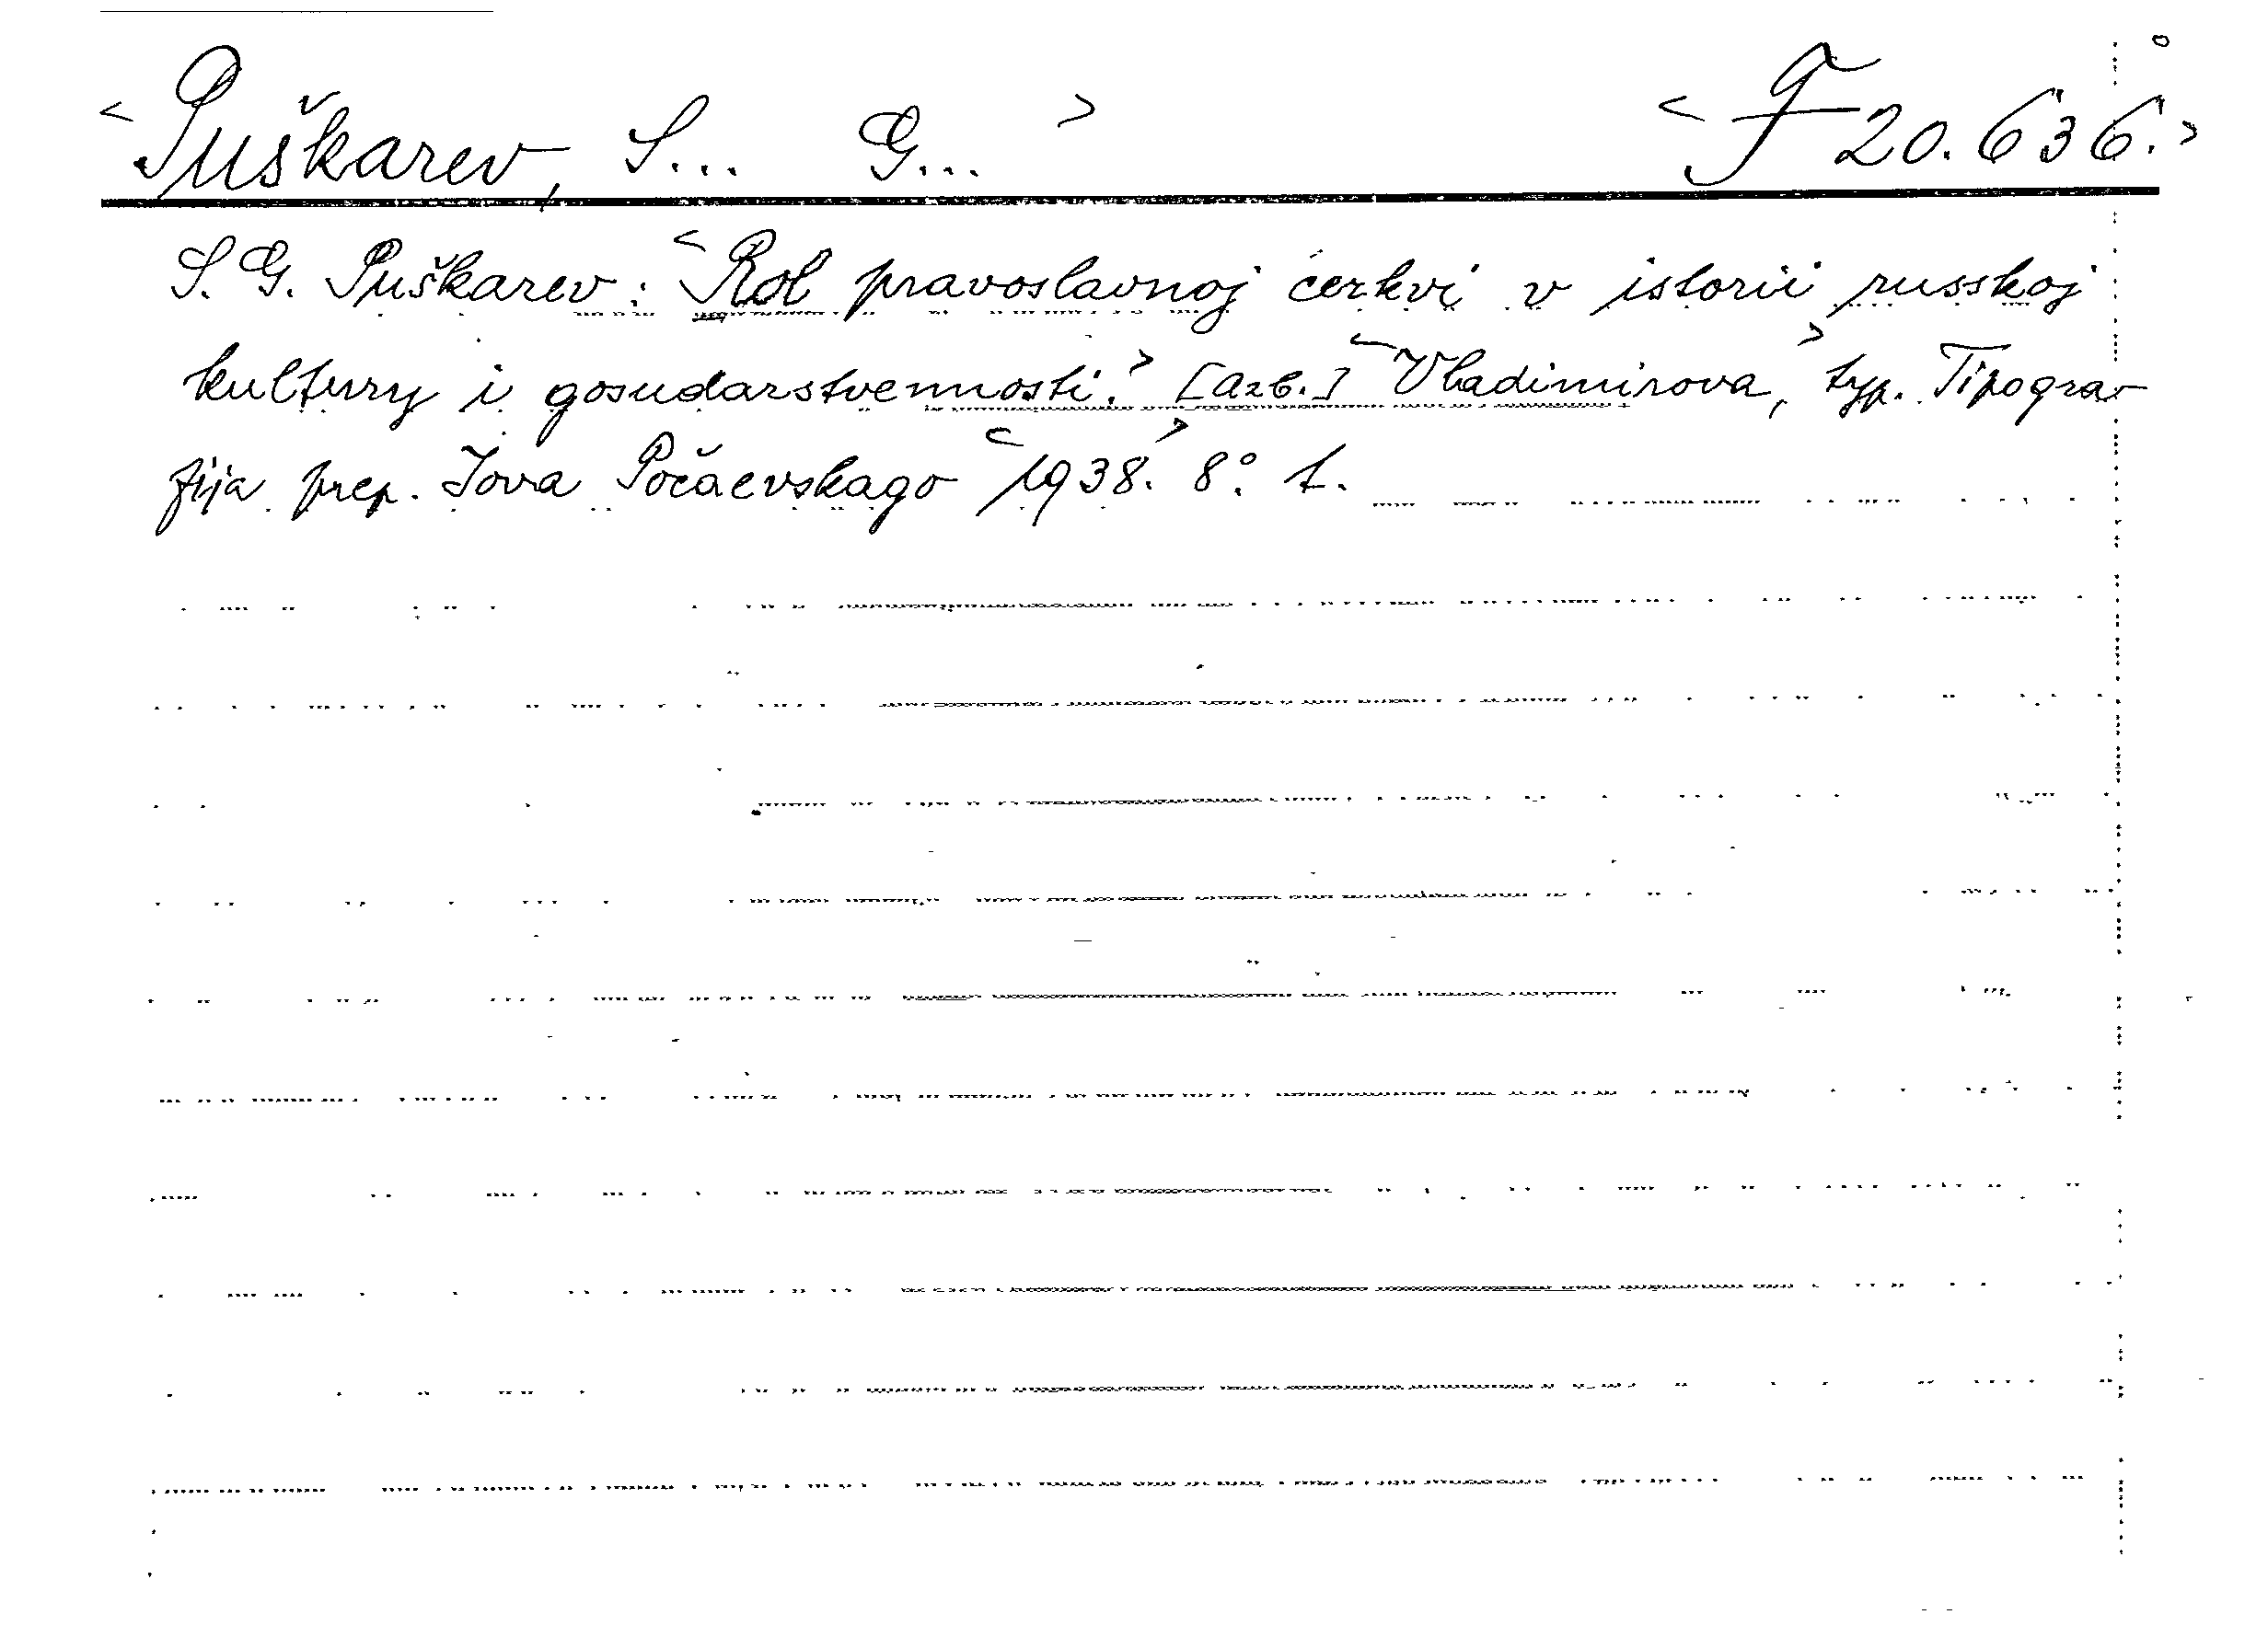 <Puškarev, S... G...> <F 20.636.>
S. G. Puškarev: <Rol pravoslavnoj cerkvi v istorii russkoj
kultury i gosudarstvennosti.> [azb.] <Vladimirova,> typ. Tipogra-
fija prep. Iova Počaevskago <1938.> 8°. 1.